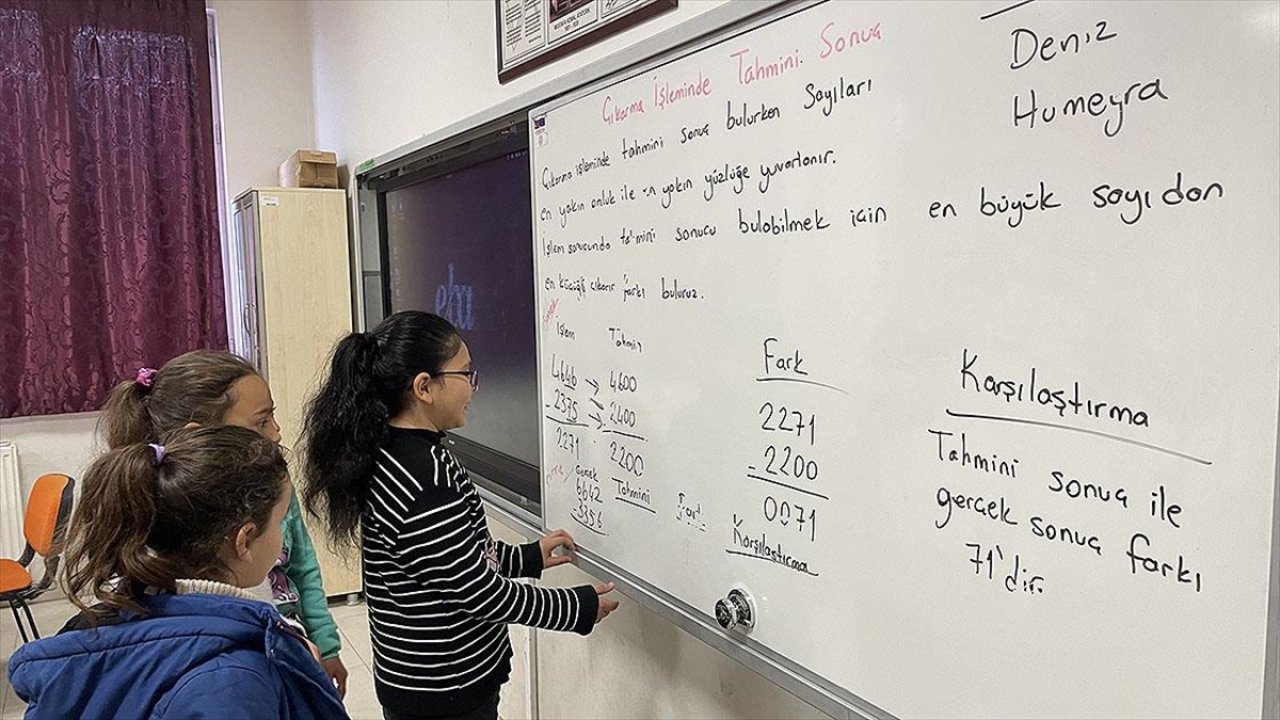 Çıkarma İşleminde Tahmini Sonuç
Çıkarma işleminde tahmini sonuç bulurken Sayıları
en yakın onluk ile en yakın yüzlüğe yuvarlanır.
İşlem sonucunda tahmini sonucu bulabilmek için en büyük sayıdan
en küçüğü çıkarır farkı buluruz.
Deniz
Humeyra
eba
İşlem Tahmin
4646 → 4600
- 2375 → 2400
2271 2200
Gerçek Tahmini
6642
- 3356
Fark
2271
- 2200
0071
Karşılaştırma
Karşılaştırma
Tahmini sonuç ile
gerçek sonuç farkı
71'dir.